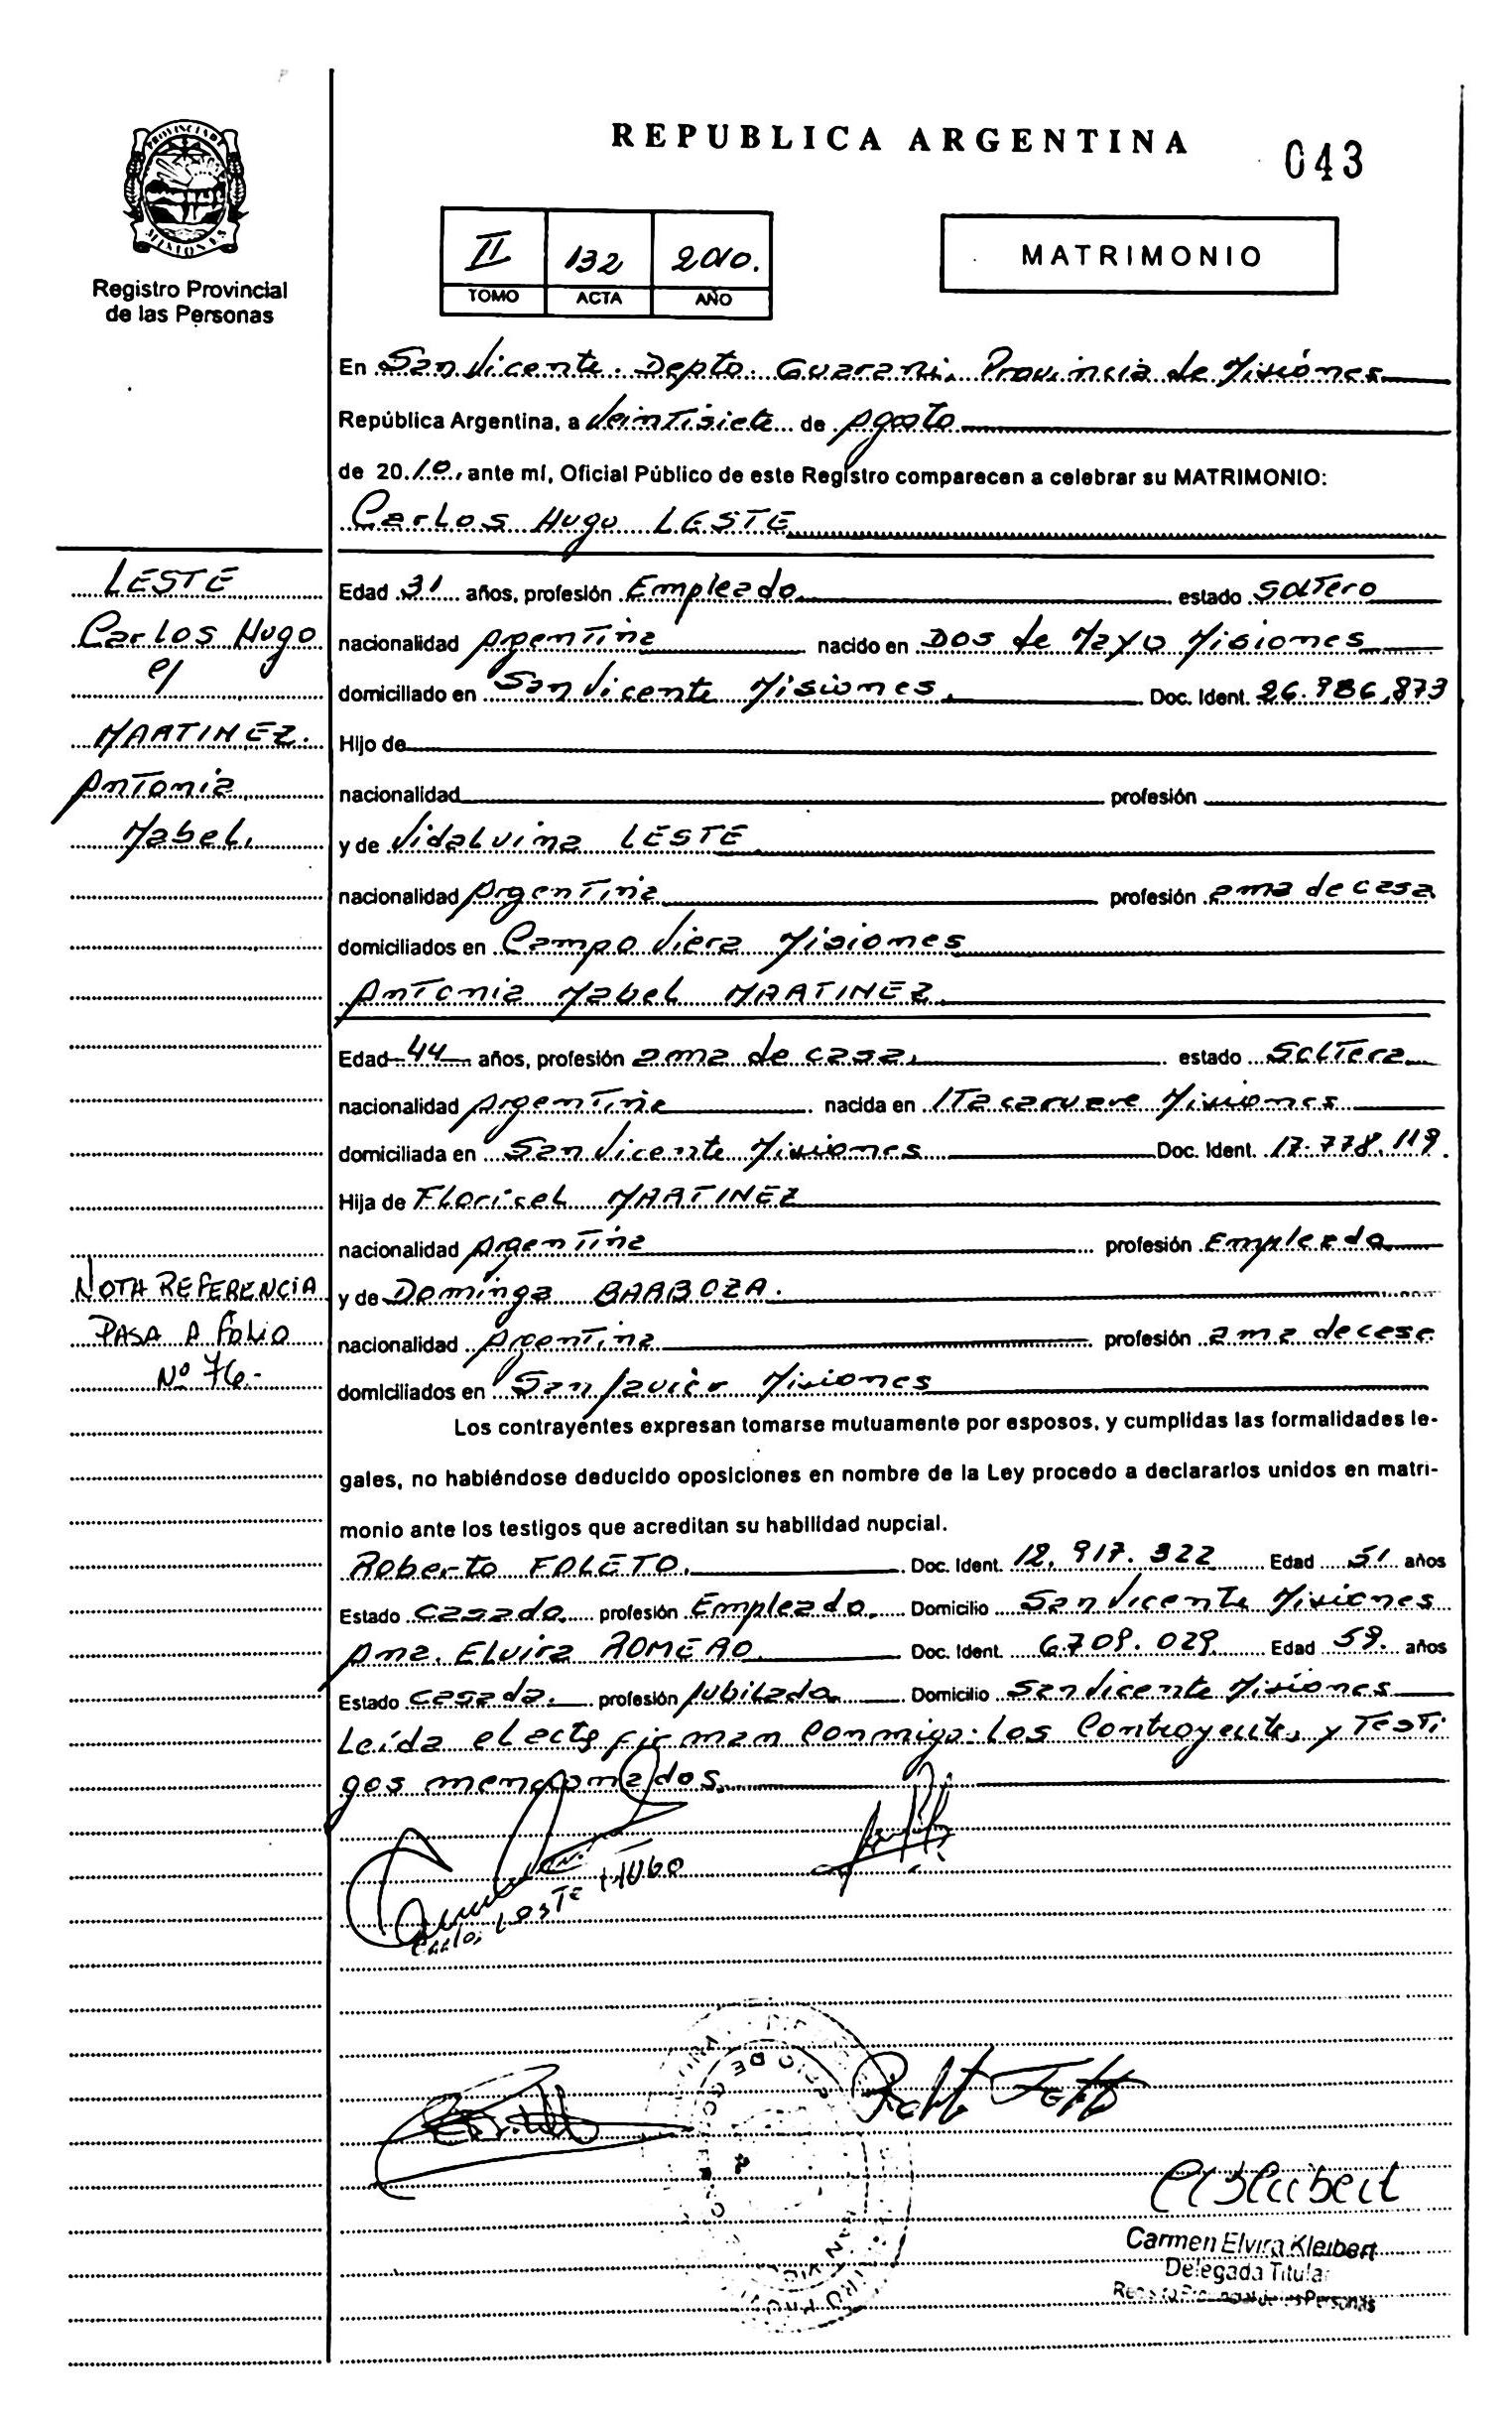 REPUBLICA ARGENTINA
043
PROVINCIA DE
MISIONES
Registro Provincial
de las Personas
II 132 2010.
TOMO ACTA AÑO
MATRIMONIO
En San Vicente. Depto. Guarani. Provincia de Misiónes
República Argentina, a Veintisiete de Agosto
de 20.10, ante mí, Oficial Público de este Registro comparecen a celebrar su MATRIMONIO:
Carlos Hugo LESTE
LESTE
Carlos Hugo
c/
MARTINEZ.
Antonia
Mabel.
Edad 31 años, profesión Empleado estado Soltero
nacionalidad Argentina nacido en Dos de Mayo Misiones
domiciliado en San Vicente Misiones. Doc. Ident. 26.986.873
Hijo de
nacionalidad profesión
y de Vidalvina LESTE
nacionalidad Argentina profesión ama de casa
domiciliados en Campo Viera Misiones
Antonia Mabel MARTINEZ.
Edad 44 años, profesión ama de casa. estado Soltera
nacionalidad Argentina nacida en Itacaruare Misiones
domiciliada en San Vicente Misiones Doc. Ident. 17.778.119.
Hija de Floricel MARTINEZ
nacionalidad Argentina profesión Empleado
y de Dominga BARBOZA.
nacionalidad Argentina profesión ama de casa
domiciliados en San Javier Misiones
NOTA REFERENCIA
PASA A FOLIO
Nº 76.-
Los contrayentes expresan tomarse mutuamente por esposos, y cumplidas las formalidades le-
gales, no habiéndose deducido oposiciones en nombre de la Ley procedo a declararlos unidos en matri-
monio ante los testigos que acreditan su habilidad nupcial.
Roberto FOLETO. Doc. Ident. 12.917.322 Edad 51 años
Estado Casado profesión Empleado. Domicilio San Vicente Misiones
Ana. Elvira ROMERO. Doc. Ident. 6.709.029. Edad 59. años
Estado Casada. profesión Jubilada Domicilio San Vicente Misiones
Leída el acta firman Conmigo: los Contrayentes y Testi
gos mencionados.
Carlos LESTE HUGO
Carmen Elvira Kleibert
Delegada Titular
Registro Provincial de las Personas